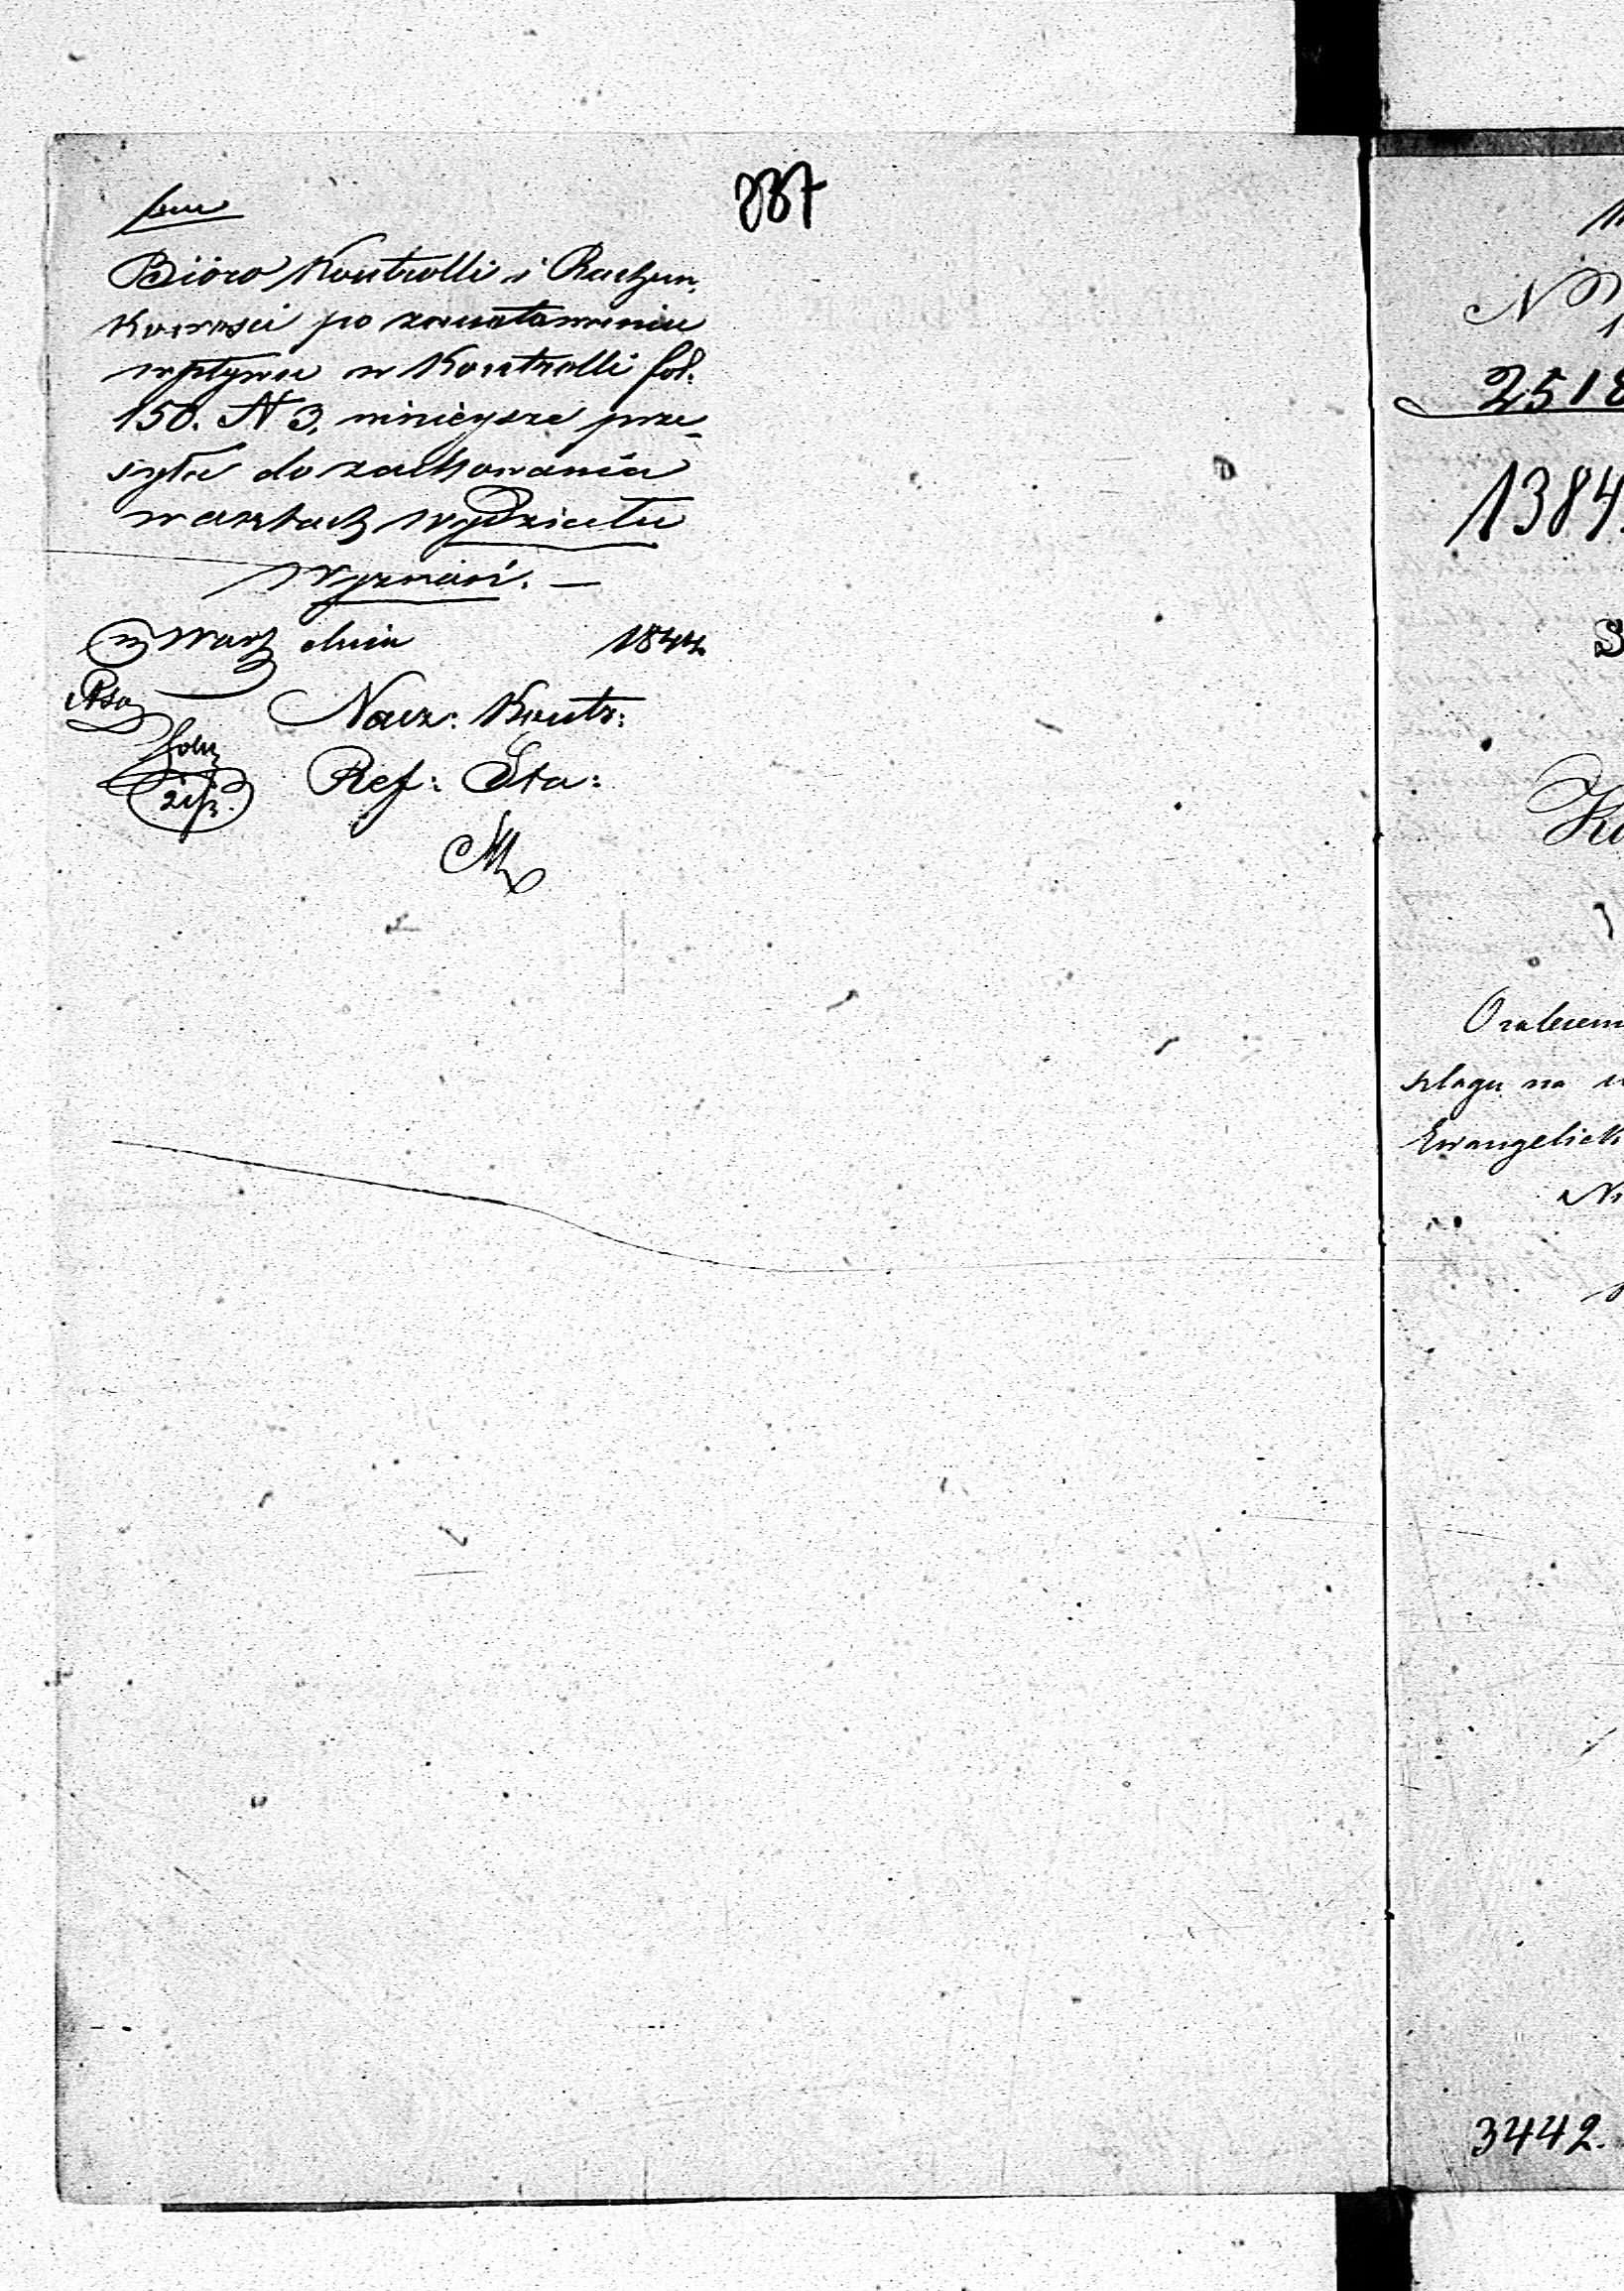 237
Bióro Kontrolli i Rachun,
kowości po zanotowaniu
wpływu w Kontrolli fol.
150. N 3, niniejsze prze_
syła do zachowania
w aktach Wydziału
Wyznań. —
w Warsz dnia 1844
Nacz: Kontr:
Ref: Sta:
N
2518
1384
O zaleceni
szlagu na
Ewangelick
3442.